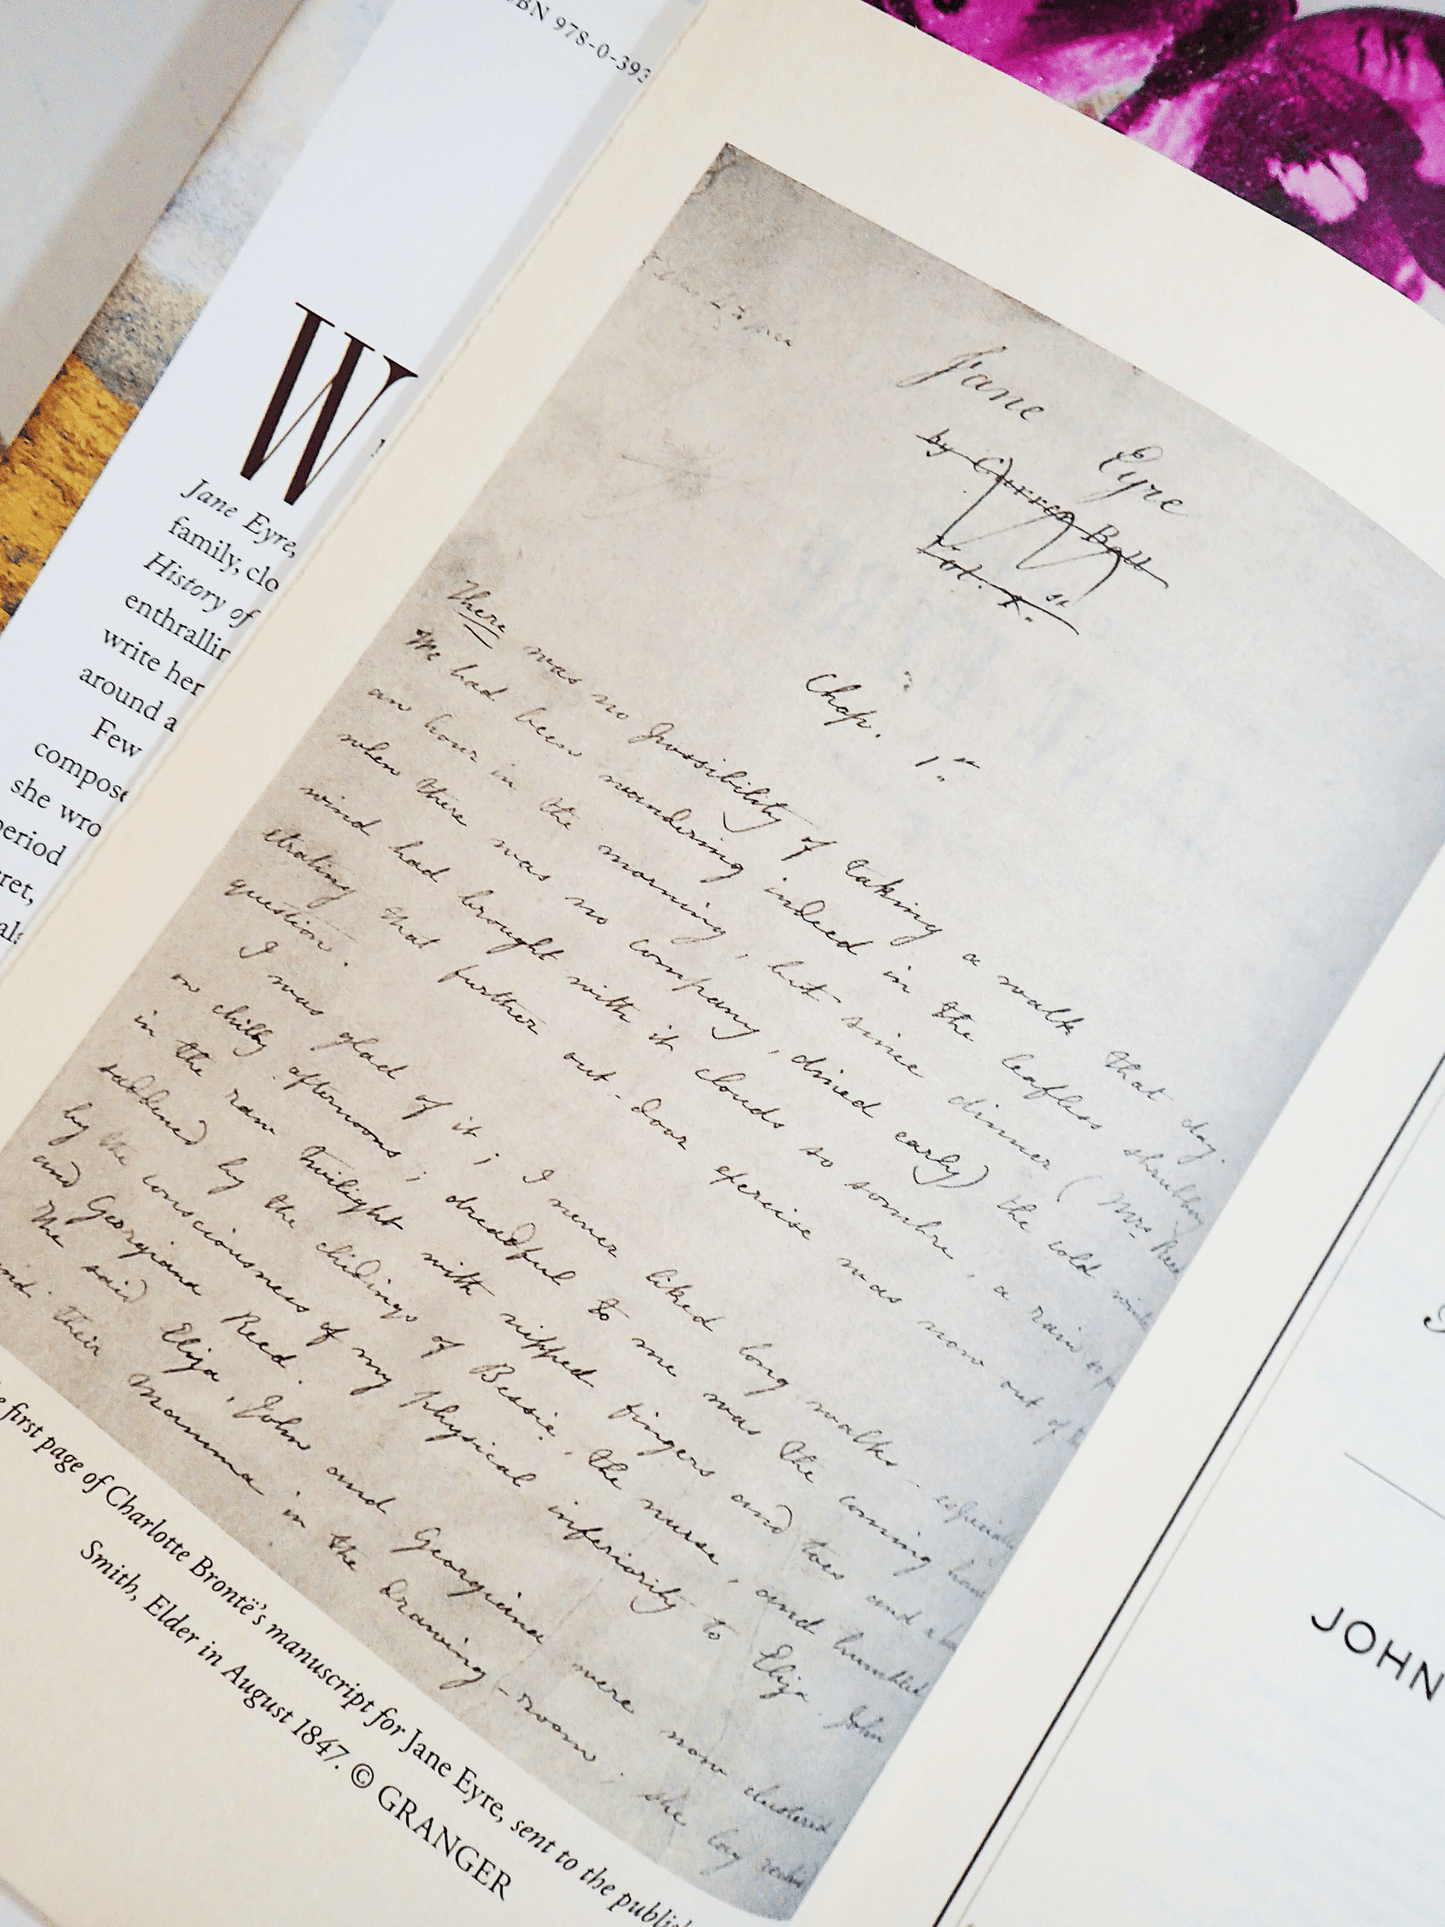 BN 978-0-393
W
Jane Eyre,
family, clo
History of
enthrallin
write her
around a
Few
compose
she wro
period
cret,
als
Jane Eyre
by Currer Bell
Vol. 1.st
Chap. 1.st
There was no possibility of taking a walk that day.
We had been wandering indeed in the leafless shrubbery
an hour in the morning, but since dinner (Mrs Reed
when there was no company, dined early) the cold winter
wind had brought with it clouds so sombre, a rain so pe
etrating that further out-door exercise was now out of the
question.
I was glad of it; I never liked long walks - especially
on chilly afternoons; dreadful to me was the coming home
in the raw twilight with nipped fingers and toes and a he
saddened by the chidings of Bessie, the nurse, and humbled
by the consciousness of my physical inferiority to Eliza, John
and Georgiana Reed.
The said Eliza, John and Georgiana were now clustered
nd their Mamma in the drawing-room. she lay reclin
e first page of Charlotte Brontë's manuscript for Jane Eyre, sent to the publish
Smith, Elder in August 1847. © GRANGER
JOHN